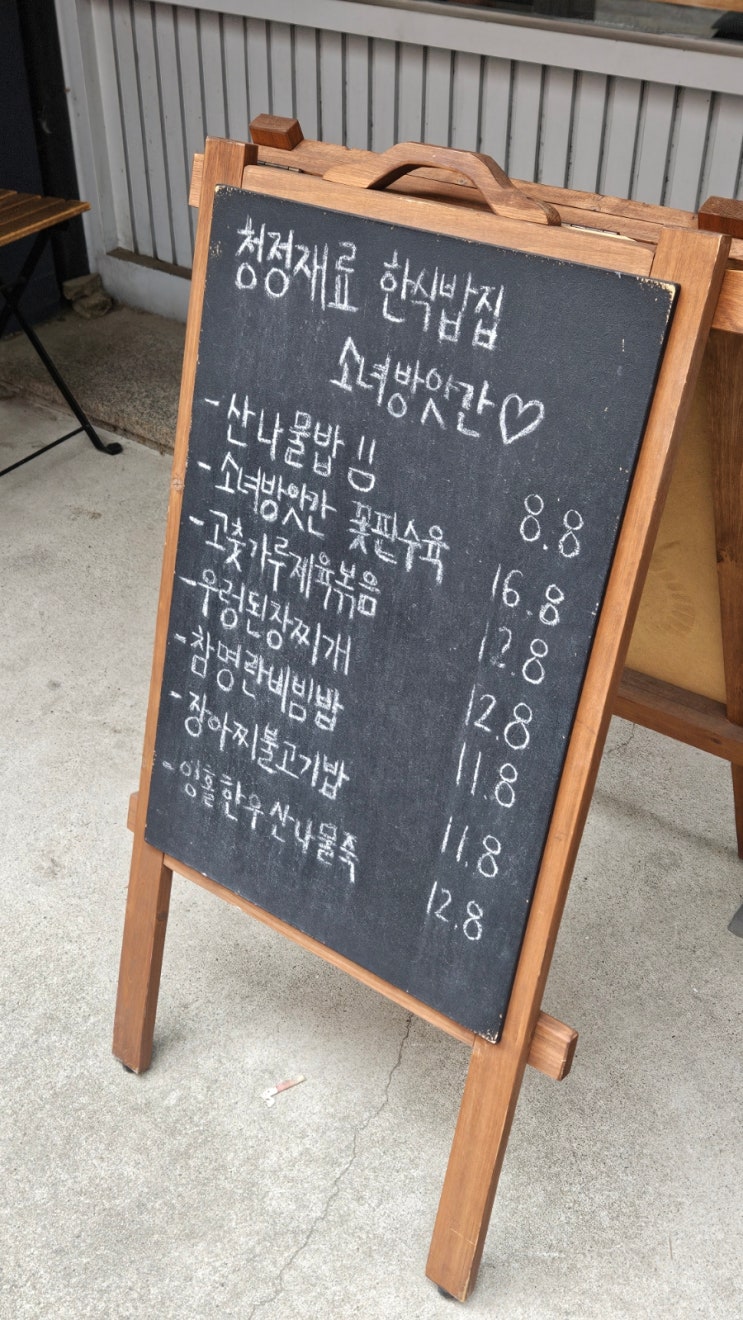 청정재료 한식밥집
소녀방앗간♡
- 산나물밥 8.8
- 소녀방앗간 꽃판수육 16.8
- 고춧가루제육볶음 12.8
- 우렁된장찌개 12.8
- 참명란비빔밥 11.8
- 장아찌불고기밥 11.8
- 잉홀한우산나물죽 12.8